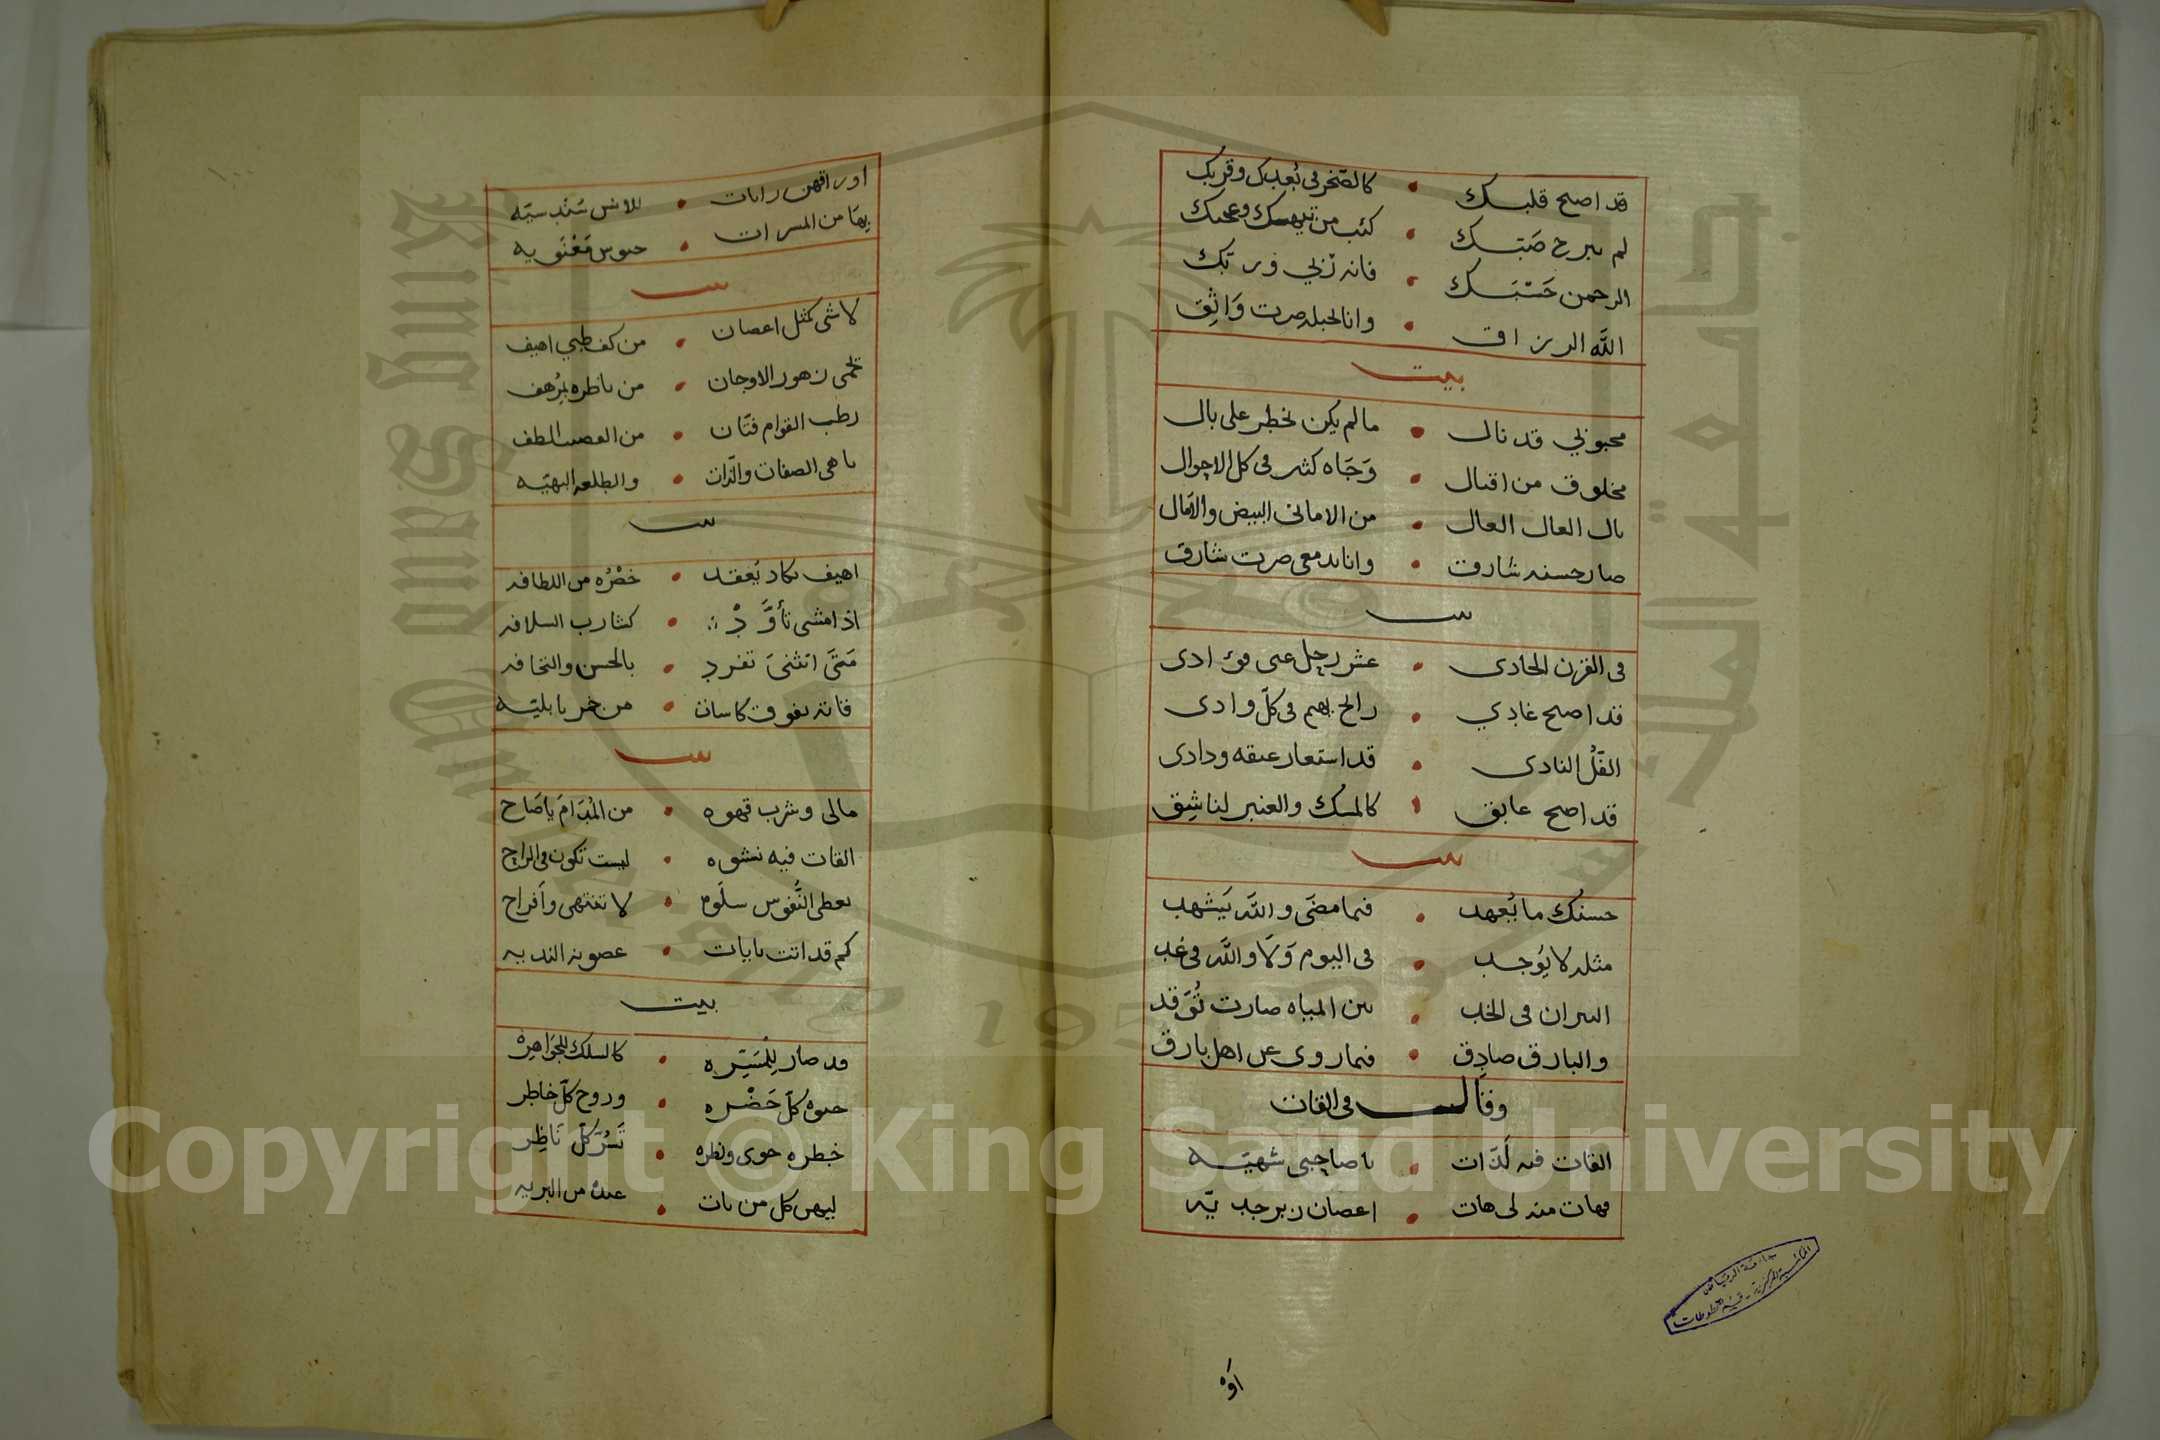 قد اصبح قلبك • كالصخر في بُعدك وقربك
لم يبرح صَبّك • كئب من تيهك وعجبك
الرحمن حَسْبَك • فانه ربي ورَبّك
اللّه الرزاق • وانا لحبله صرت وَاثِق
بيت
محبوبي قد نال • ما لم يكن يخطر على بال
مخلوق من اقبال • وَجَاه كثير في كل الاحوال
بال العال العال • من الاماني البيض والآمال
صار حسنه شارق • وانا بدمعي صرت شارق
بيت
في القرن الحادي • عشر رحل عني فؤادي
قد اصبح غادي • رايح يهيم في كلّ وادي
الفَلّ النادي • قد استعار عبقه ودادي
قد اصبح عابق • كالمسك والعنبر لناشِق
بيت
حسنك ما يُعهد • فيما مضَى واللّه يَشهد
مثله لا يُوجد • في اليوم وَلَا واللَّه في غد
النيران في الخد • بين المياه صارت تُوَقد
والبارق صادِق • فيما روى عن اهل بارق
وقال في القات
القات فيه لَذّات • يا صاحبي شهيّه
فهات منه لي هات • اغصان زبرجديّه
اوراقهن رايات • للانس سُندسيّه
بها من المسرات • جيوش مَعْنَويه
بيت
لا شي كمثل اغصان • من كف ظبي اهيف
يحمي زهور الاوجان • من ناظره بمُرهف
رطب القوام فتّان • من الغصن الطف
باهي الصفات والذّات • والطلعه البهيّه
بيت
اهيف يكاد يُعقد • خصْرُه من اللطافه
اذا مشى تأوَّدْ • كشارب السلافه
مَتَى انثنىَ تفرد • بالحسن والنحافه
فاته يفوق كاسات • من خمر بابليّه
بيت
مالي وشرب قهوه • من المُدَامَ يا صَاح
القات فيه نشوه • ليست تكون في الراح
يعطي النُّفوس سلَوه • لا تنتهي وَافراح
كم قد اتت بايات • غصونه النديه
بيت
قد صار لِلمَسَرّه • كالسلك للجَوَاهِرْ
حيوة كلّ حَضْره • وروح كلّ خاطر
خطره حوى ونظره • تَسُرّ كلّ نَاظِر
ليهن كل من بات • عبدٌ من البريه
اوراه
جامعة الرياض
المكتبة المركزية - قسم المخطوطات
١٠٠
King Saud University
جامعة الملك سعود
1957
Copyright © King Saud University